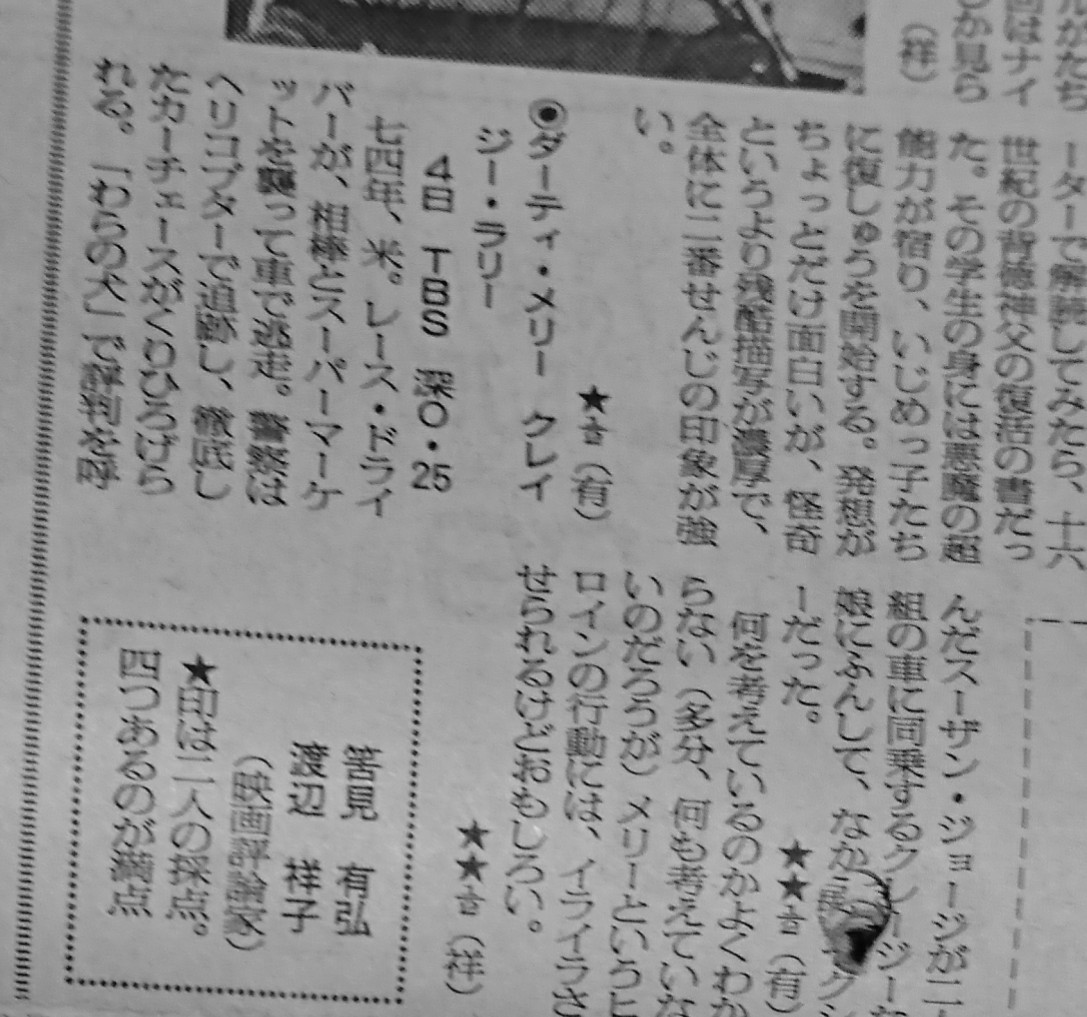 ルがたち
回はナイ
か見ら
(祥)
ーターで解読してみたら、十六
世紀の背徳神父の復活の書だっ
た。その学生の身には悪魔の超
能力が宿り、いじめっ子たち
に復しゅうを開始する。発想が
ちょっとだけ面白いが、怪奇
というより残酷描写が濃厚で、
全体に二番せんじの印象が強
い。
★半(有)
◉ダーティ・メリー クレイ
ジー・ラリー
4日 TBS 深0・25
七四年、米。レース・ドライ
バーが、相棒とスーパーマーケ
ットを襲って車で逃走。警察は
ヘリコプターで追跡し、徹底し
たカーチェースがくりひろげら
れる。「わらの犬」で評判を呼
んだスーザン・ジョージが二
組の車に同乗するクレージーな
娘にふんして、なか クシ
ーだった。
★★半(有)
何を考えているのかよくわか
らない(多分、何も考えていな
いのだろうが)メリーというヒ
ロインの行動には、イライラさ
せられるけどおもしろい。
★★半(祥)
筈見 有弘
渡辺 祥子
(映画評論家)
★印は二人の採点。
四つあるのが満点